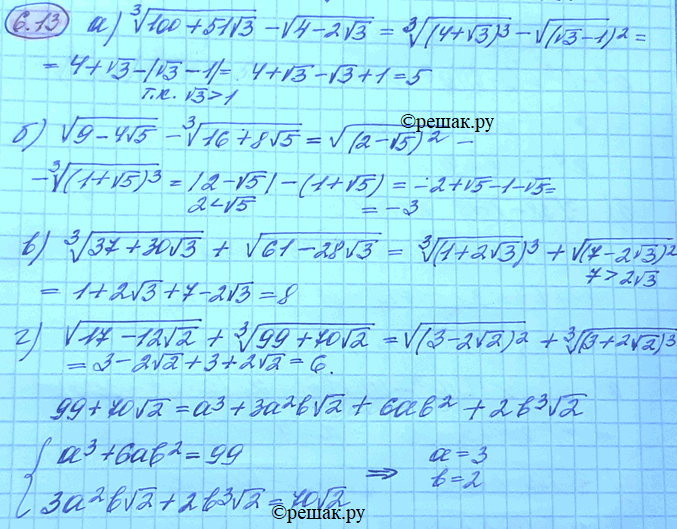 6.13 а) ∛(100+51√3) − √(4−2√3) = ∛((4+√3)³) − √((√3−1)²) =
= 4+√3−|√3−1| = 4+√3−√3+1=5
т.к. √3>1
©решак.ру
б) √(9−4√5) − ∛(16+8√5) = √((2−√5)²) −
−∛((1+√5)³) = |2−√5| − (1+√5) = −2+√5−1−√5=
2<√5 = −3
в) ∛(37+30√3) + √(61−28√3) = ∛((1+2√3)³) + √((7−2√3)²)
7>2√3
= 1+2√3+7−2√3=8
г) √(17−12√2) + ∛(99+70√2) = √((3−2√2)²) + ∛((3+2√2)³)
= 3−2√2+3+2√2=6.
99+70√2=a³+3a²b√2+6ab²+2b³√2
{ a³+6ab²=99 ⇒ a=3
3a²b√2+2b³√2=70√2 b=2
©решак.ру